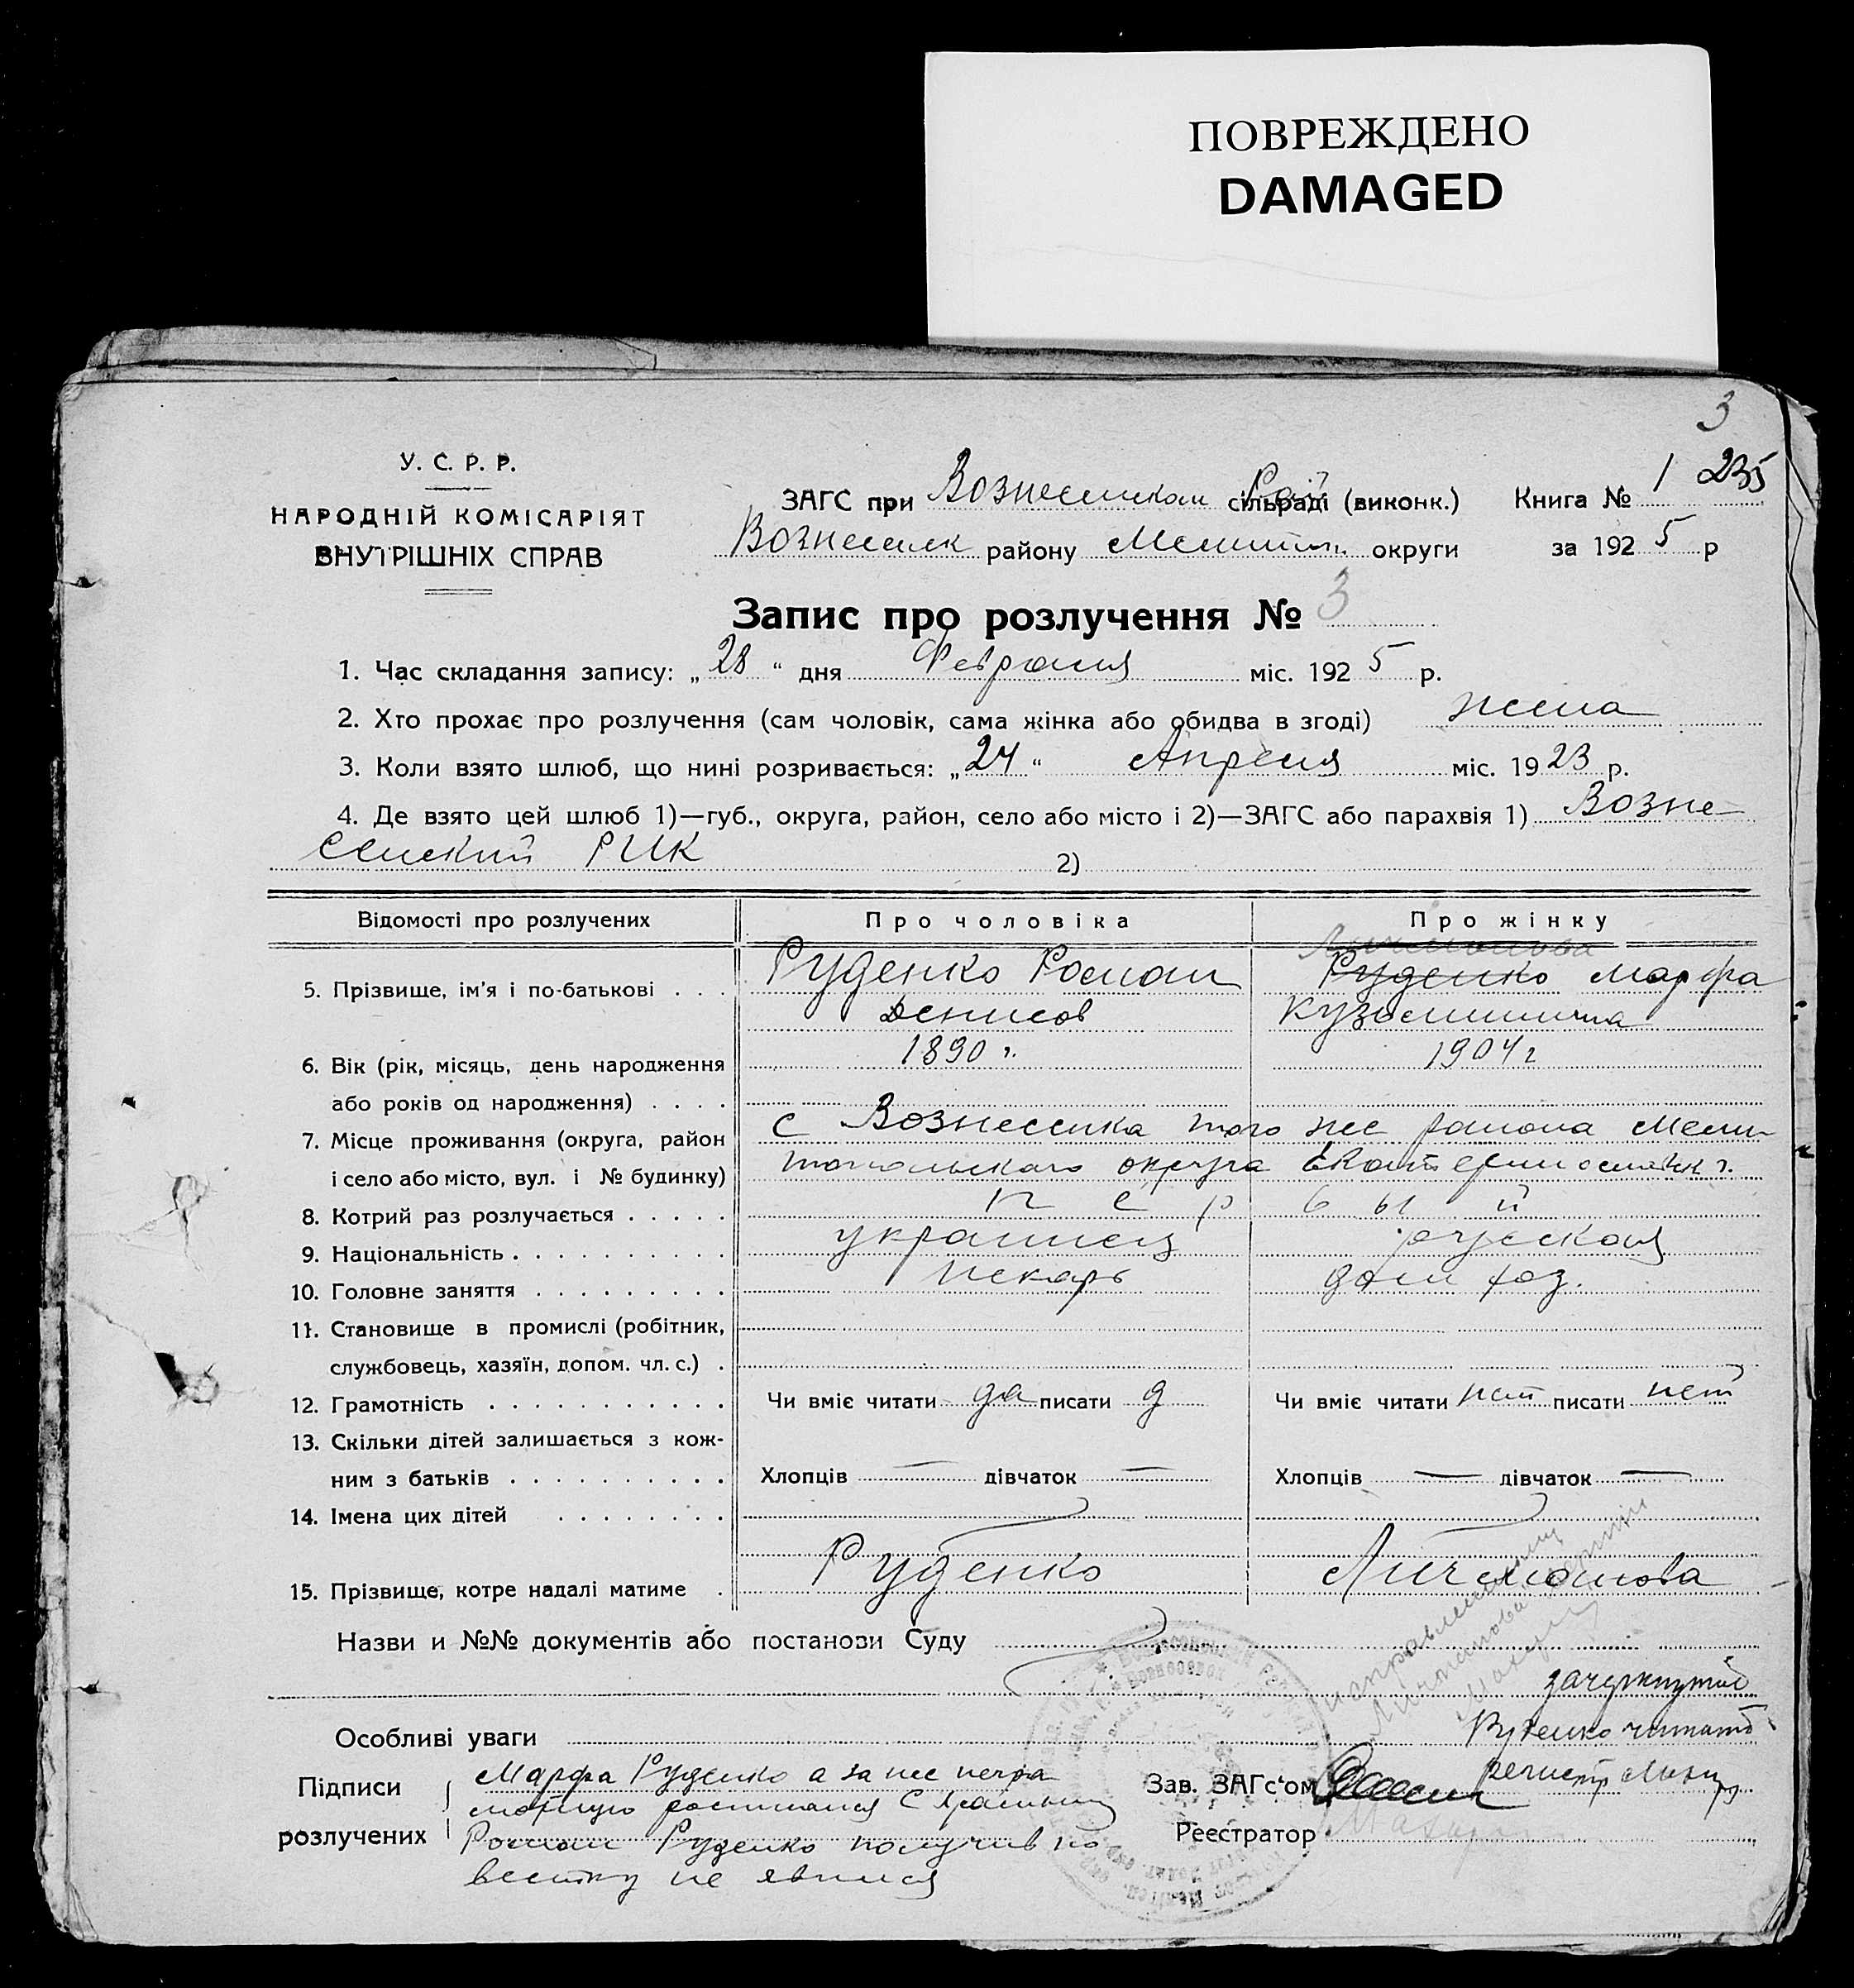 ПОВРЕЖДЕНО
DAMAGED
3
У. С. Р. Р.
НАРОДНІЙ КОМІСАРІЯТ
ВНУТРІШНІХ СПРАВ
ЗАГС при Вознесенском Рай сільраді (виконк.) Книга № 1 235
Вознесенск району Мелитоп. округи за 1925 р
Запис про розлучення № 3
1. Час складання запису: „28“ дня Февраля міс. 1925 р.
2. Хто прохає про розлучення (сам чоловік, сама жінка або обидва в згоді) жена
3. Коли взято шлюб, що нині розривається: „24“ Апреля міс. 1923 р.
4. Де взято цей шлюб 1)—губ., округа, район, село або місто і 2)—ЗАГС або парахвія 1) Возне-
сенский РИК 2)
Відомості про розлучених Про чоловіка Про жінку
5. Прізвище, ім'я і по-батькові . . . Руденко Роман Руденко Марфа
Денисов Кузьминична
6. Вік (рік, місяць, день народження 1890 г. 1904 г
або років од народження) . . . .
7. Місце проживання (округа, район с Вознесенка того же района Мели-
і село або місто, вул. і № будинку) топольского округа Екатеринославск г.
8. Котрий раз розлучається . . . . . п е р в ы й
9. Національність . . . . . . . . . . украинец русская
10. Головне заняття . . . . . . . . . пекарь дом хоз.
11. Становище в промислі (робітник,
службовець, хазяїн, допом. чл. с.) .
12. Грамотність . . . . . . . . . . . Чи вміє читати да писати д Чи вміє читати нет писати нет
13. Скільки дітей залишається з кож-
ним з батьків . . . . . . . . . . Хлопців — дівчаток — Хлопців — дівчаток —
14. Імена цих дітей . . . . . . . .
15. Прізвище, котре надалі матиме . Руденко Личманова
Назви и №№ документів або постанови Суду
зачеркнутое
Особливі уваги Руденко читать
Підписи Марфа Руденко а за нее негра- Зав. ЗАГс'ом регистр
мотную росписался С
розлучених Роман Руденко получив по- Реєстратор
вестку не явился